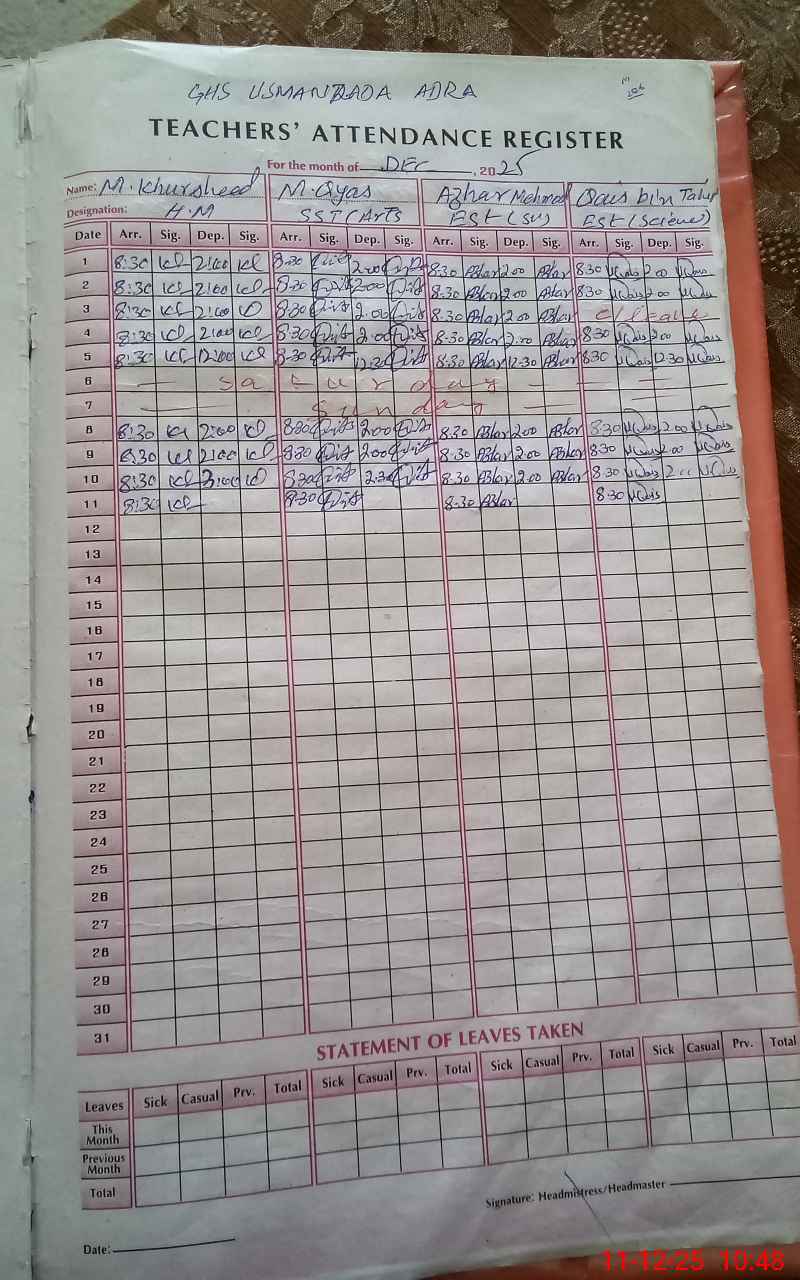 GHS USMANZADA ADRA
TEACHERS' ATTENDANCE REGISTER
For the month of DEC, 2025
Name: M. Khursheed M. Qyas Azhar Mehmod Qais bin Tahir
Designation: H.M SST (Arts EST (SV) ESt (Science)
Date Arr. Sig. Dep. Sig. Arr. Sig. Dep. Sig. Arr. Sig. Dep. Sig. Arr. Sig. Dep. Sig.
1 8:30 2:00 8:30 2:00 8:30 Azhar 2:00 Azhar 8:30 Qais 2:00 Qais
2 8:30 2:00 8:30 2:00 8:30 Azhar 2:00 Azhar 8:30 Qais 2:00 Qais
3 8:30 2:00 8:30 2:00 8:30 Azhar 2:00 Azhar C/Leave
4 8:30 2:00 8:30 2:00 8:30 Azhar 2:00 Azhar 8:30 Qais 2:00 Qais
5 8:30 12:00 8:30 12:30 8:30 Azhar 12:30 Azhar 8:30 Qais 12:30 Qais
6 — Saturday — — —
7 — Sunday — —
8 8:30 2:00 8:30 2:00 8:30 Azhar 2:00 Azhar 8:30 Qais 2:00 Qais
9 8:30 2:00 8:30 2:00 8:30 Azhar 2:00 Azhar 8:30 Qais 2:00 Qais
10 8:30 3:00 8:30 2:30 8:30 Azhar 2:00 Azhar 8:30 Qais 2:00 Qais
11 8:30 8:30 8:30 Azhar 8:30 Qais
12
13
14
15
16
17
18
19
20
21
22
23
24
25
26
27
28
29
30
31
STATEMENT OF LEAVES TAKEN
Leaves Sick Casual Prv. Total Sick Casual Prv. Total Sick Casual Prv. Total Sick Casual Prv. Total
This Month
Previous Month
Total
Signature: Headmistress/Headmaster
Date:
11-12-25 10:48